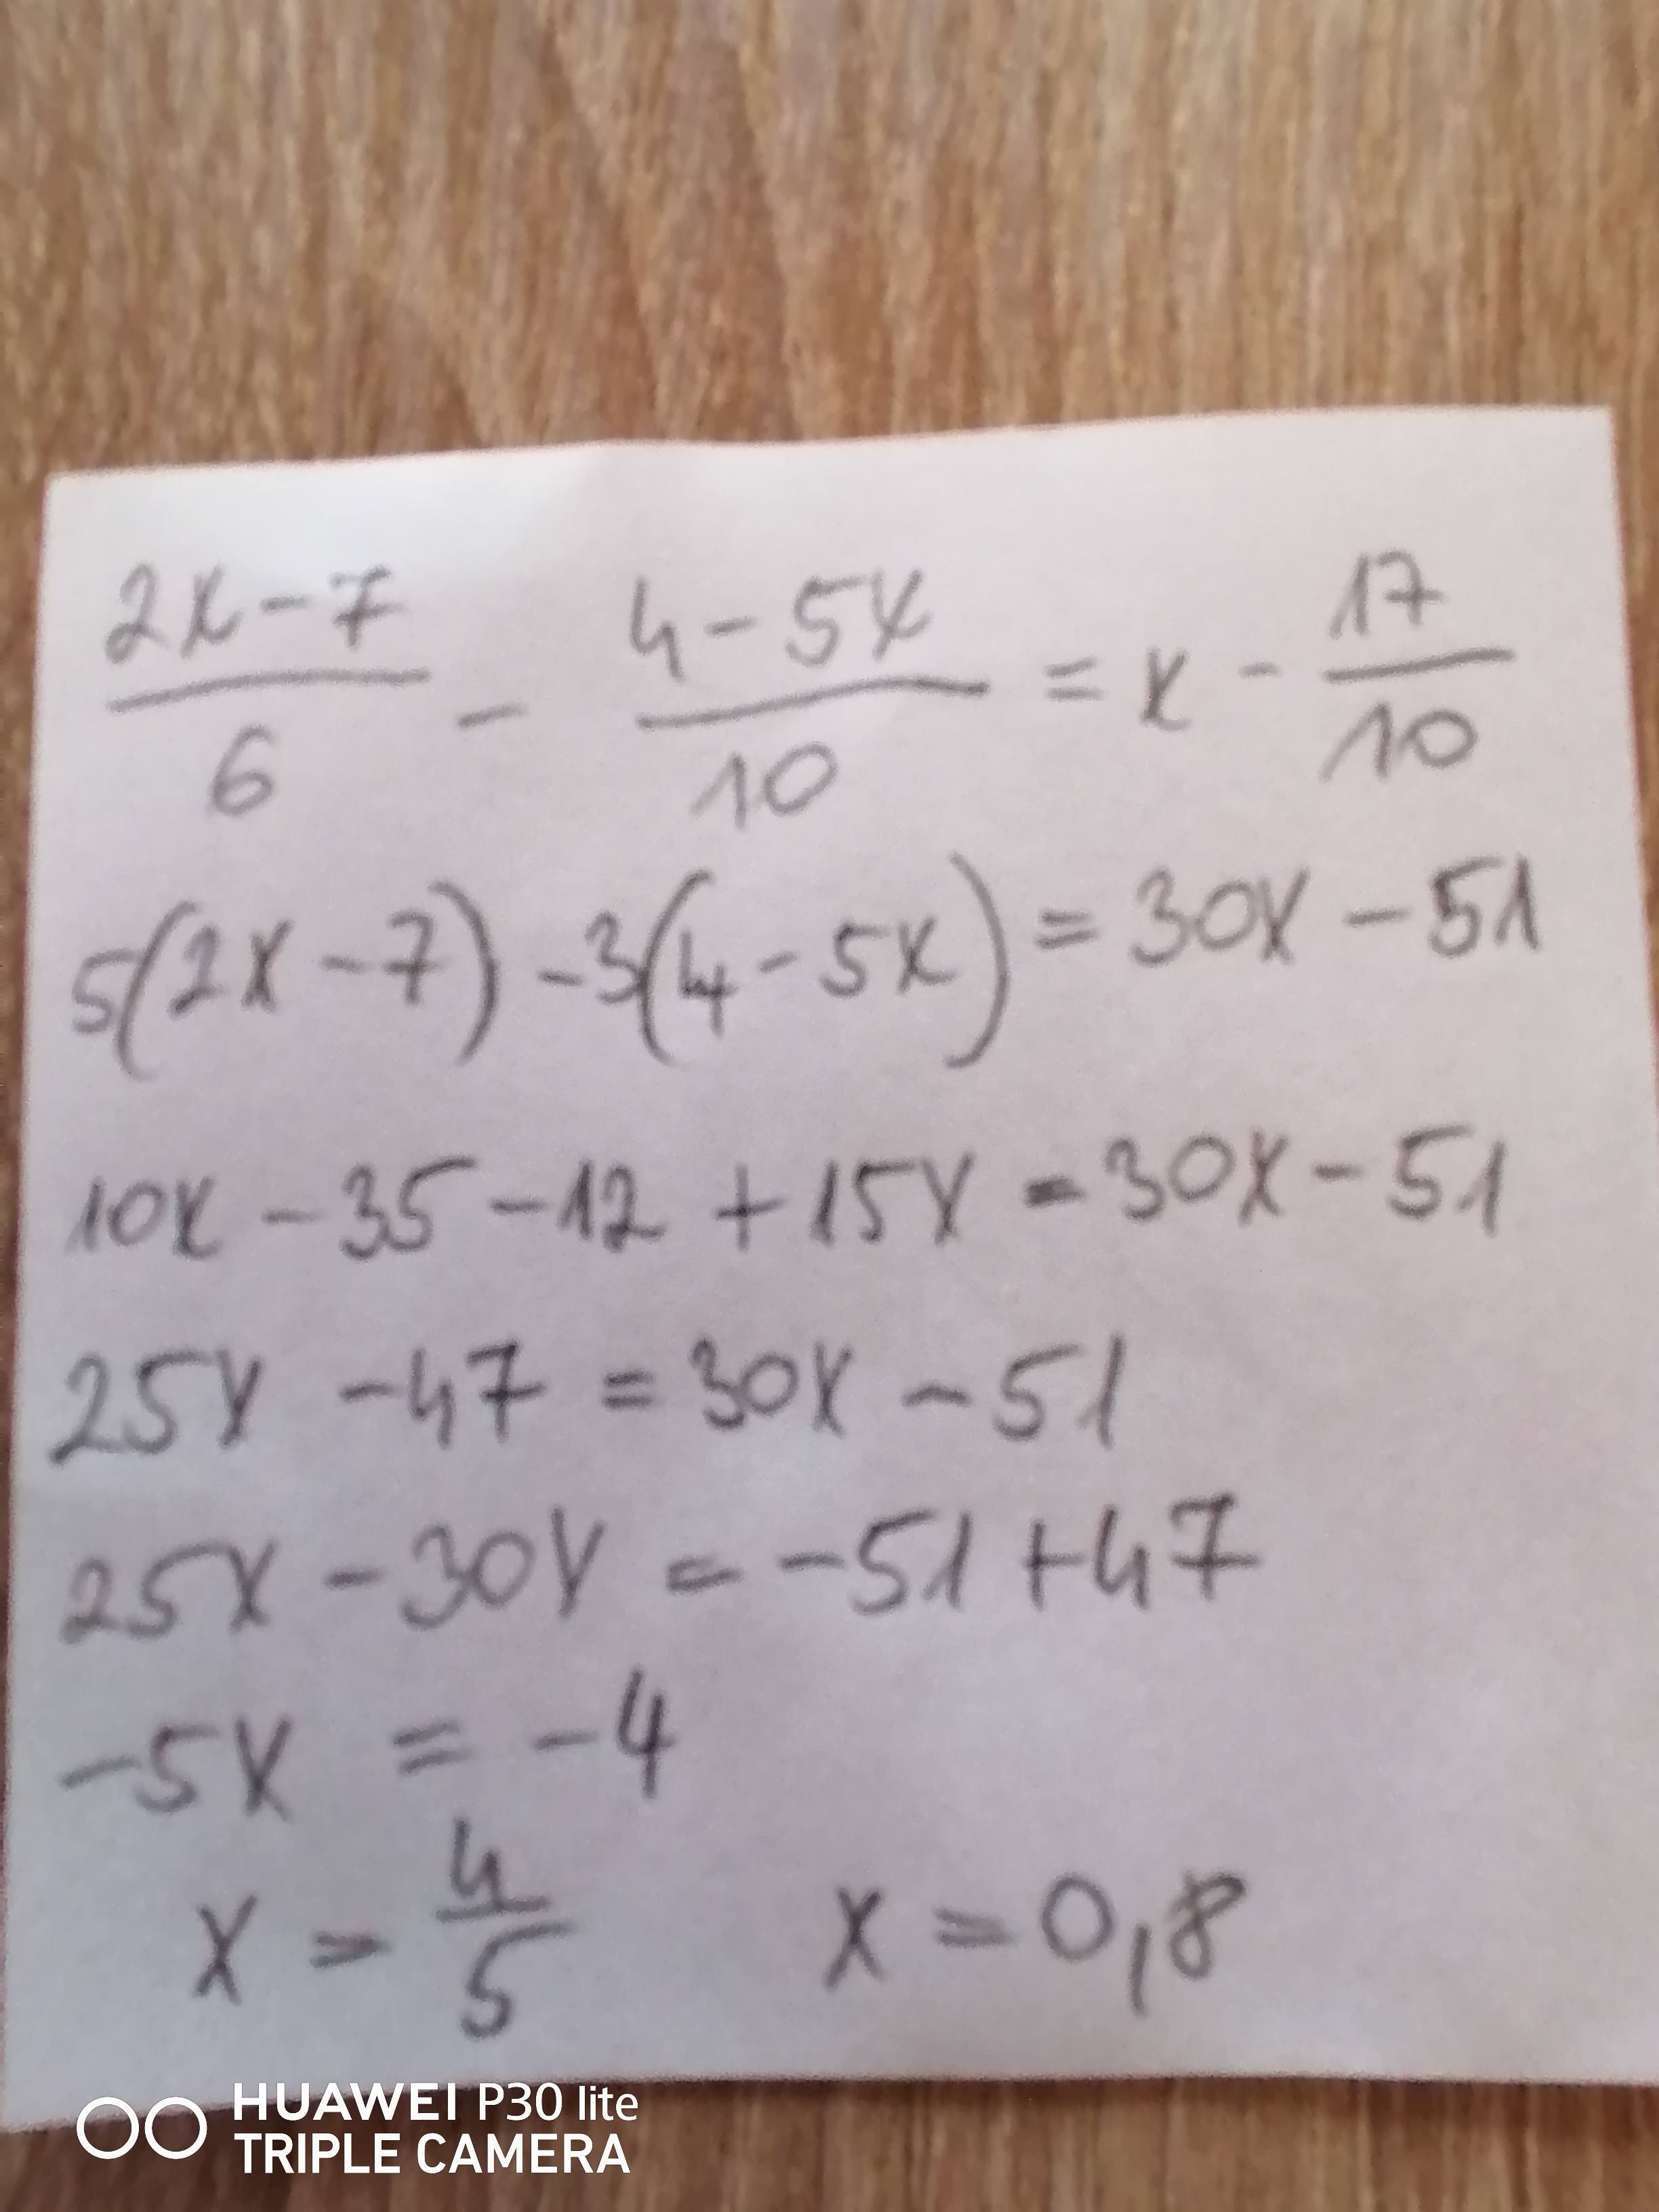 2x-7/6 - 4-5x/10 = x - 17/10
5(2x-7)-3(4-5x)=30x-51
10x-35-12+15x=30x-51
25x-47=30x-51
25x-30x=-51+47
-5x=-4
x=4/5 x=0,8
HUAWEI P30 lite
TRIPLE CAMERA